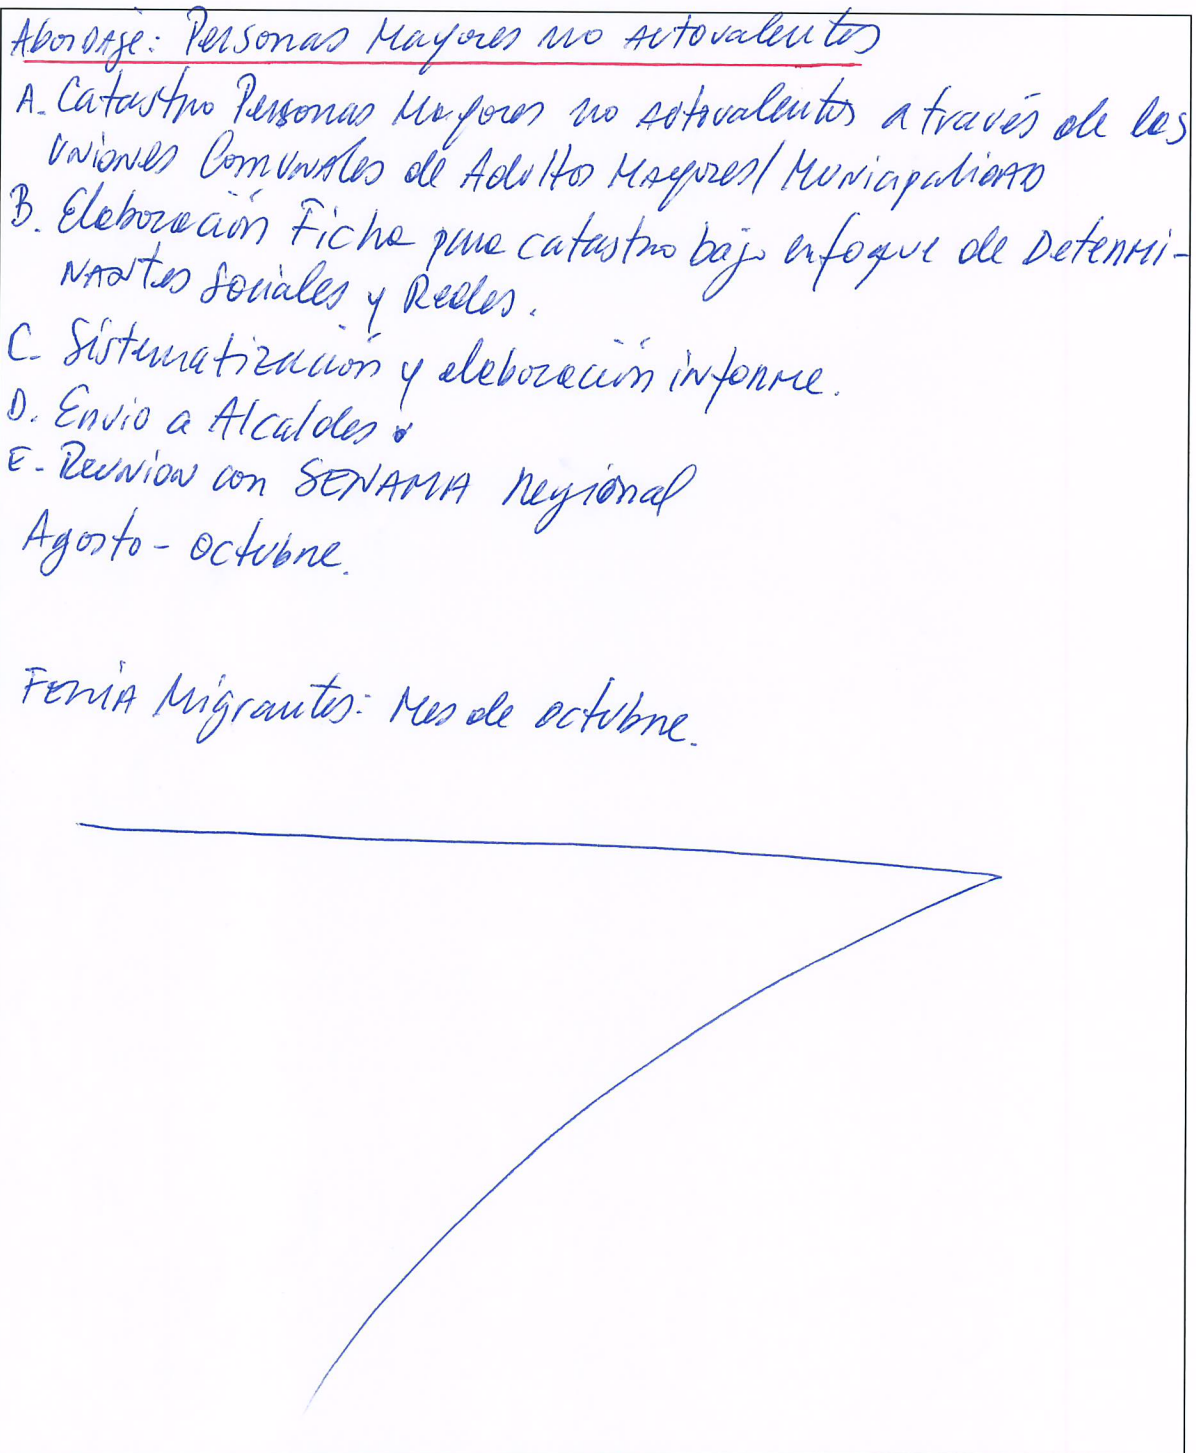 Abordaje: Personas Mayores no Autovalentes
A. Catastro Personas Mayores no autovalentes a través de las
Uniones Comunales de Adultos Mayores/Municipalidad
B. Elaboración Ficha para catastro bajo enfoque de Determi-
nantes Sociales y Redes.
C- Sistematización y elaboración informe.
D. Envio a Alcaldes.
E- Reunion con SENAMA Regional
Agosto - octubre.
Feria Migrantes: Mes de octubre.